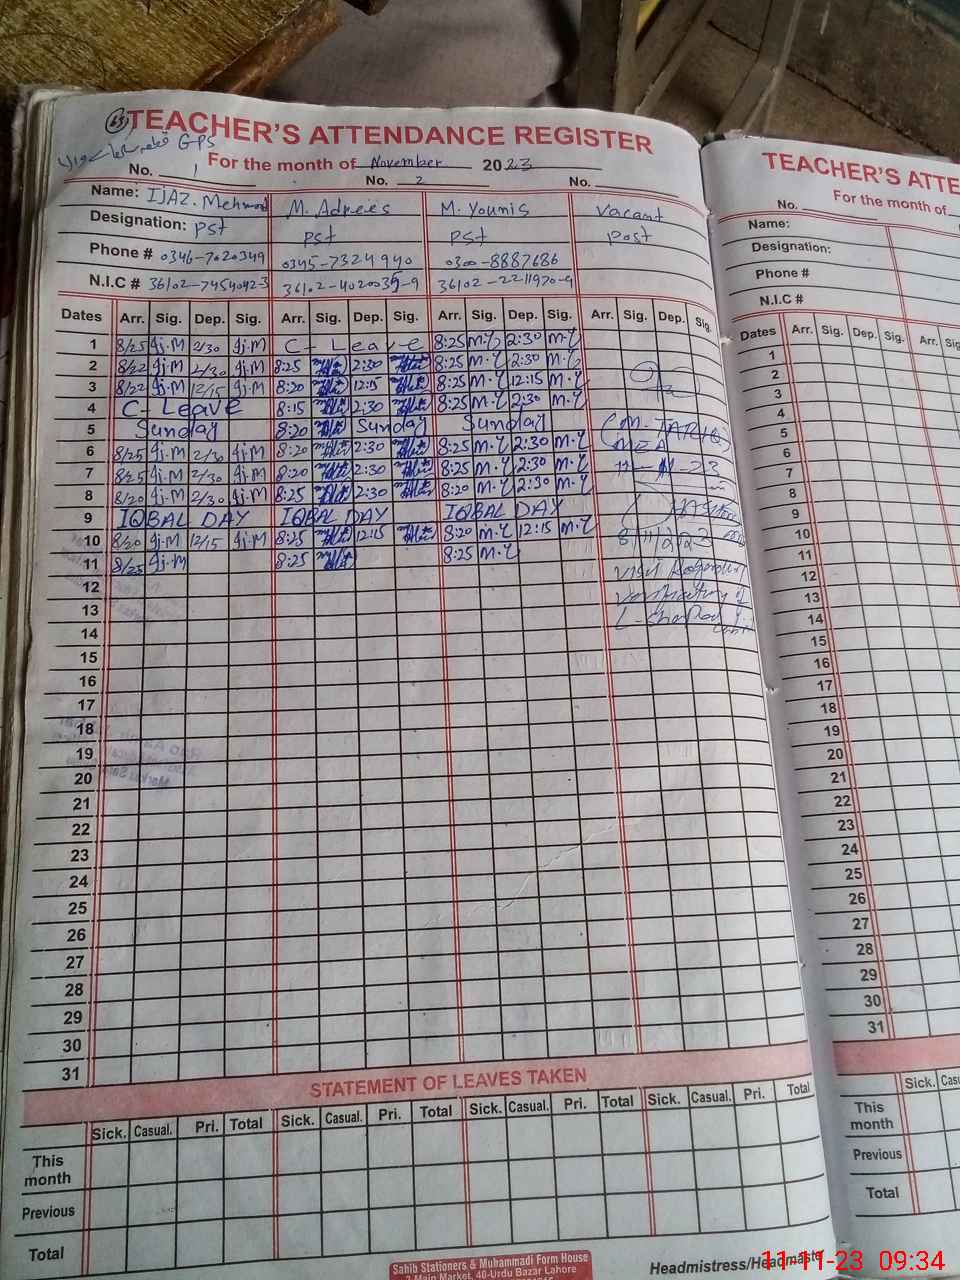 65
TEACHER'S ATTENDANCE REGISTER
GPS
For the month of November 2023
No. 1 No. 2 No.
Name: IJAZ. Mehmood M. Adrees M. Younis Vacant
Designation: PST PST PST Post
Phone # 0346-7020349 0345-7324940 0300-8887686
N.I.C # 36102-7454042-3 36102-4020035-9 36102-2211970-9
Dates Arr. Sig. Dep. Sig. Arr. Sig. Dep. Sig. Arr. Sig. Dep. Sig. Arr. Sig. Dep. Sig.
1 8/25 Ij.M 2/30 Ij.M C- Leave 8:25 M.Y 2:30 M.Y
2 8/22 Ij.M 2/30 Ij.M 8:25 2:30 8:25 M.Y 2:30 M.Y
3 8/22 Ij.M 12/15 Ij.M 8:20 12:15 8:25 M.Y 12:15 M.Y
4 C- Leave 8:15 2:30 8:25 M.Y 2:30 M.Y
5 Sunday 8:20 Sunday Sunday
6 8/25 Ij.M 2/30 Ij.M 8:20 2:30 8:25 M.Y 2:30 M.Y
7 8/25 Ij.M 2/30 Ij.M 8:20 2:30 8:25 M.Y 2:30 M.Y
8 8/20 Ij.M 2/30 Ij.M 8:25 2:30 8:20 M.Y 2:30 M.Y
9 IQBAL DAY IQBAL DAY IQBAL DAY
10 8/20 Ij.M 12/15 Ij.M 8:25 12:15 8:20 M.Y 12:15 M.Y
11 8/25 Ij.M 8:25 8:25 M.Y
12
13
14
15
16
17
18
19
20
21
22
23
24
25
26
27
28
29
30
31
(M. TARIQ)
MEA
11-11-23
8/11/2023
Visit
STATEMENT OF LEAVES TAKEN
Sick. Casual. Pri. Total Sick. Casual. Pri. Total Sick. Casual. Pri. Total Sick. Casual. Pri. Total
This month
Previous
Total
Sahib Stationers & Muhammadi Form House
2-Main Market, 40-Urdu Bazar Lahore
Headmistress/Headmaste
TEACHER'S ATTE
For the month of
No.
Name:
Designation:
Phone #
N.I.C #
Dates Arr. Sig. Dep. Sig. Arr. Sig.
1
2
3
4
5
6
7
8
9
10
11
12
13
14
15
16
17
18
19
20
21
22
23
24
25
26
27
28
29
30
31
Sick. Casu
This month
Previous
Total
11-11-23 09:34